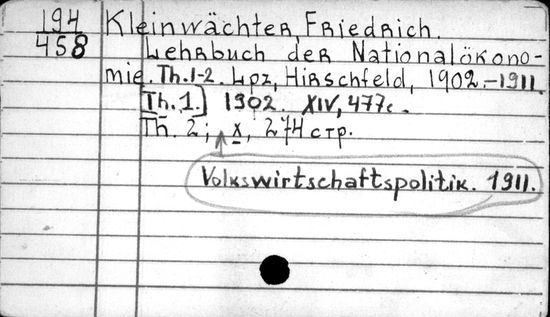 194
458
Kleinwächter, Friedrich.
Lehrbuch der Nationalökono-
mie. Th. 1-2. Lpz, Hirschfeld, 1902.-1911.
[Th. 1.] 1902. XIV, 477с.
Th. 2; x, 274 стр.
Volkswirtschaftspolitik. 1911.